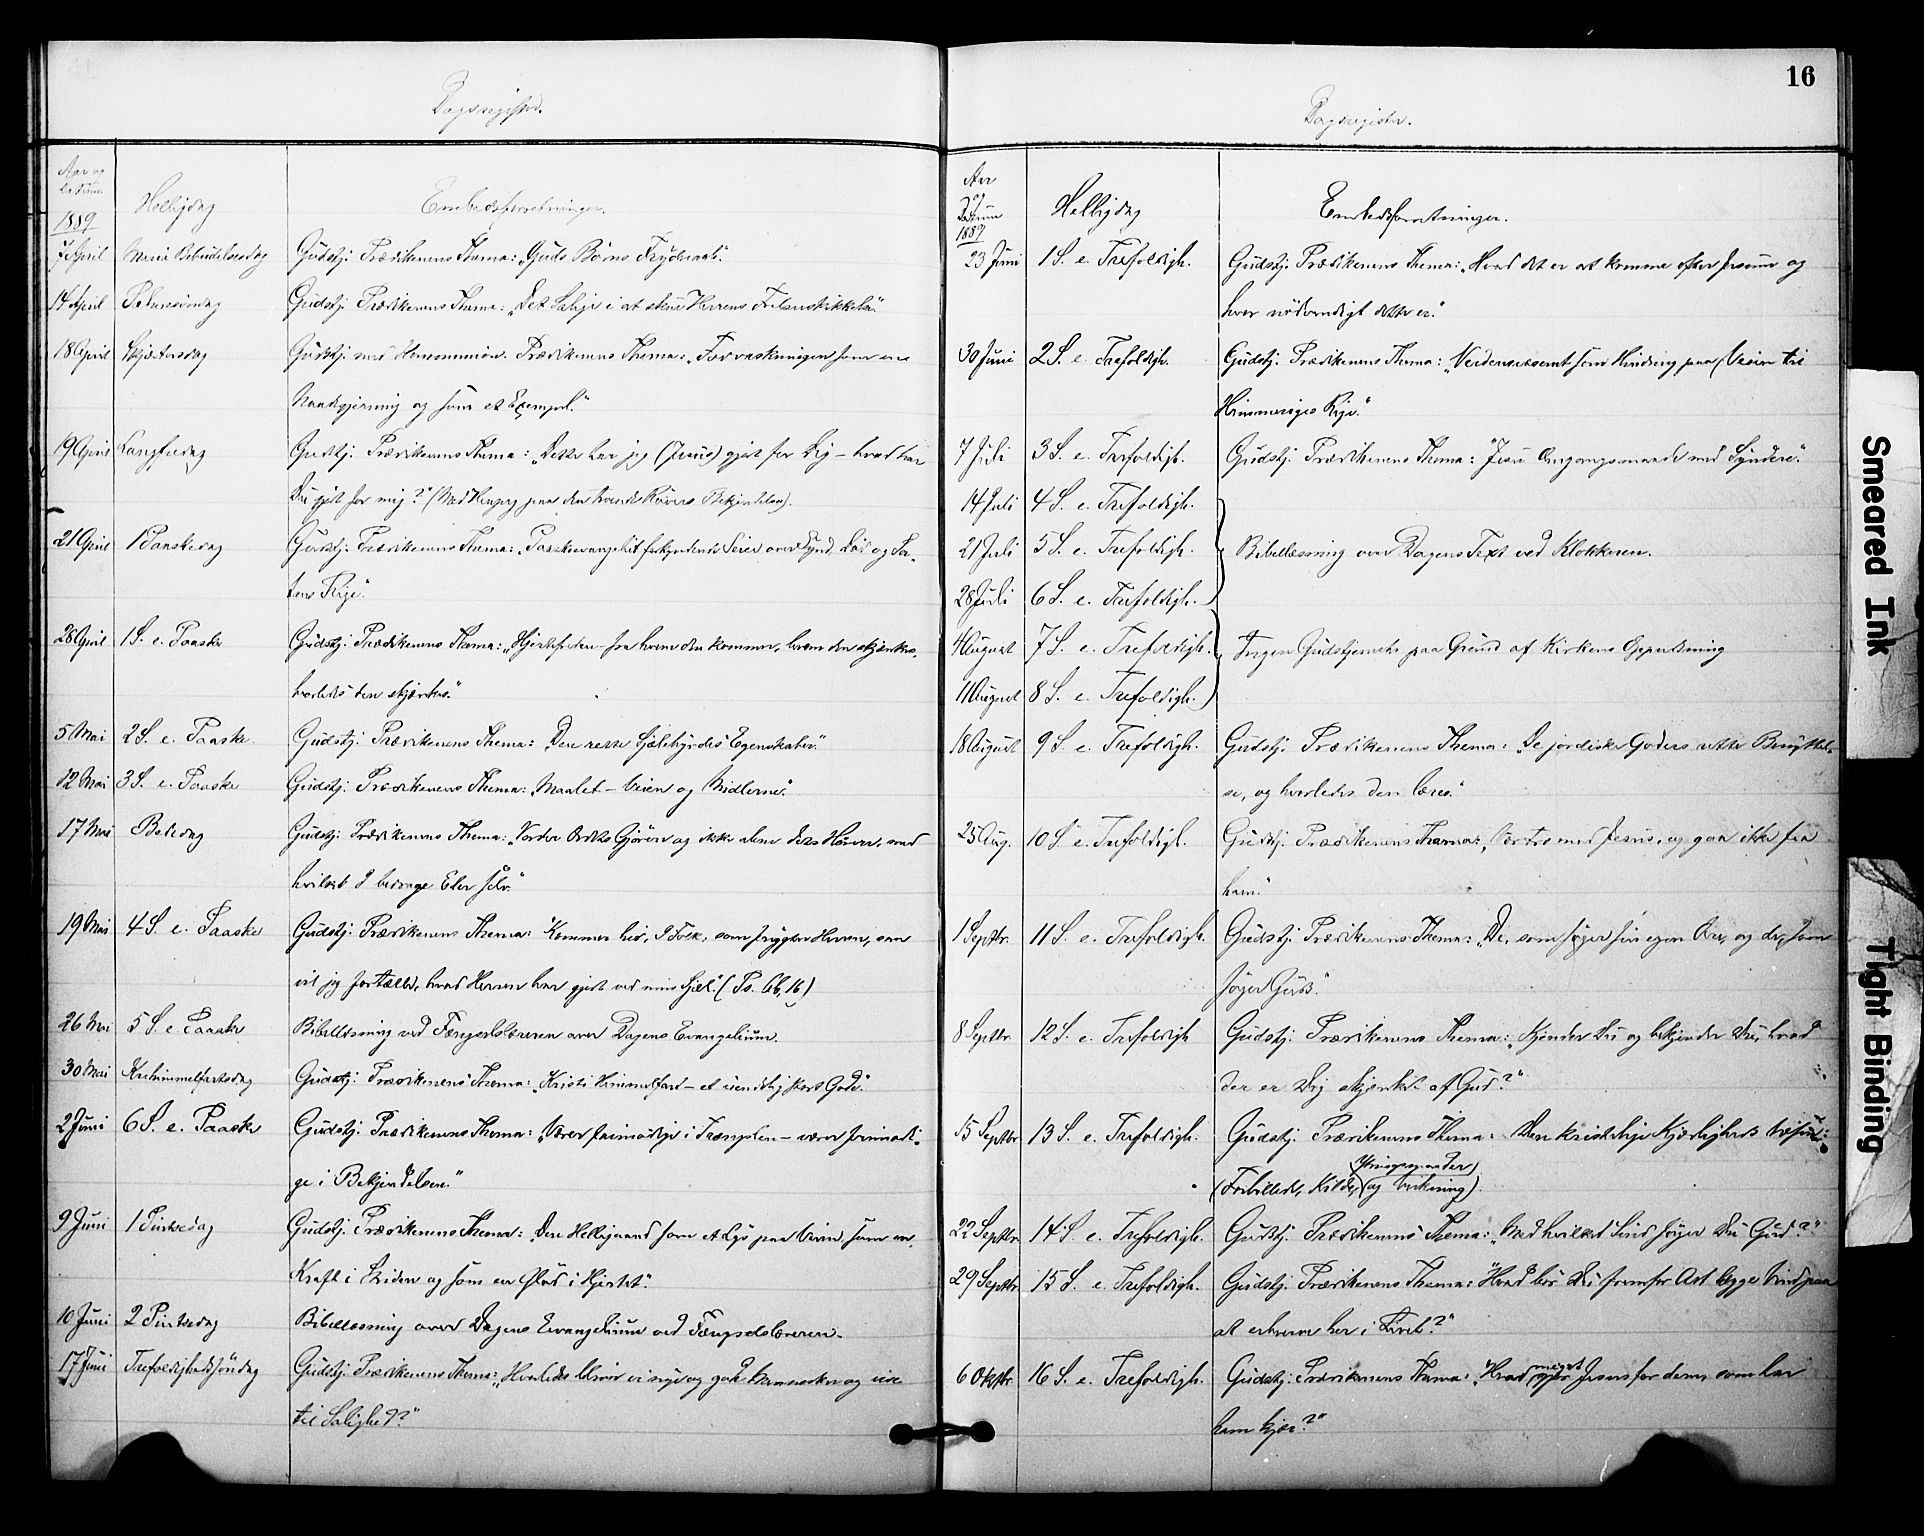 Dagsregister.
Aar og
Datum
1889
Helligdag
Embedsforretninger.
7 April Mariæ Bebudelsesdag Gudstj: Prædikenens Thema: „Guds Børns Frydemaal."
14 April Palmesøndag Gudstj: Prædikenens Thema: „Det Salige i at skue Herrens
18 April Skjærtorsdag Gudstj. med Kommunion. Prædikenens Thema: „Fodvaskningen som en
Naadegjerning og som et Exempel."
19 April Langfredag Gudstj. Prædikenens Thema: „Dette har jeg (Jesus) gjort for Dig – hvad har
Du gjort for mig?" (Med Hensyn paa den Røvers Bekjendelse).
21 April 1 Paaskedag Gudstj. Prædikenens Thema: „Paaskeevangeliet forkyndende Seier over Synd, Død og Sa-
tans Rige."
28 April 1 S. e. Paaske Gudstj. Prædikenens Thema: „Hjertefreden – fra hvem den kommer, hvem den skjænkes,
hvorledes den skjænkes."
5 Mai 2 S. e. Paaske Gudstj. Prædikenens Thema: „Den rette Sjælehyrdes Egenskaber."
12 Mai 3 S. e. Paaske Gudstj. Prædikenens Thema: „Maalet – Veien og Midlerne."
17 Mai Bededag Gudstj. Prædikenens Thema: „Vorder Ordets Gjørere og ikke alene dets Hørere, med
hvilket I bedrage Eder selv."
19 Mai 4 S. e. Paaske Gudstj. Prædikenens Thema: "Kommer hid, I Folk, som frygter Herren, saa
vil jeg fortælle, hvad Herren har gjort ved min Sjæl." (Ps. 66,16)
26 Mai 5 S. e. Paaske Bibellæsning ved Fængselslæreren over Dagens Evangelium.
30 Mai Kr. Himmelfartsdag Gudstj: Prædikenens Thema: „Kristi Himmelfart – et uendelig stort Gode."
2 Juni 6 S. e. Paaske Gudstj: Prædikenens Thema: „Værer frimodige i Trængslen – værer frimodi-
ge i Bekjendelsen."
9 Juni 1 Pintsedag Gudstj: Prædikenens Thema: „Den Helligaand som et Lys paa Veien, som en
Kraft i Striden og som en Glød i Hjertet."
10 Juni 2 Pintsedag Bibellæsning over Dagens Evangelium ved Fængselslæreren.
17 Juni Trefoldighedssøndag Gudstj: Prædikenens Thema: „Hvorledes blive vi nye og gode Mennesker og vise
til Salighed?"
16
Dagsregister.
Aar
og
Datum
1889
Helligdag
Embedsforretninger.
23 Juni 1 S. e. Trefoldigh. Gudstj. Prædikenens Thema: „Hvad det er at komme efter Jesum og
hvor nødvendigt dette er."
30 Juni 2 S. e. Trefoldigh. Gudstj. Prædikenens Thema: „Verdensvæsenet som Hindring paa Veien til
Himmeriges Rige."
7 Juli 3 S. e. Trefoldigh. Gudstj. Prædikenens Thema: "Jesu Omgangsmaade med Syndere."
14 Juli 4 S. e. Trefoldigh.
21 Juli 5 S. e. Trefoldigh. Bibellæsning over Dagens Text ved Klokkeren.
28 Juli 6 S. e. Trefoldigh.
4 August 7 S. e. Trefoldigh. Ingen Gudstjeneste paa Grund af Kirkens Oppudsning
11 August 8 S. e. Trefoldigh.
18 August 9 S. e. Trefoldigh. Gudstj. Prædikenens Thema: „De jordiske Goders rette Benyttel-
se, og hvorledes den læres."
25 Aug. 10 S. e. Trefoldigh. Gudstj. Prædikenens Thema: „ med Jesus, og gaa ikke fra
ham."
1 Septbr. 11 S. e. Trefoldigh. Gudstj. Prædikenens Thema: „De, som søger sin egen Ære, og de, som
søger Guds."
8 Septbr 12 S. e. Trefoldigh Gudstj. Prædikenens Thema: „Kjender Du og bekjender Du, hvad
der er Dig skjænket af Gud?"
15 Septbr 13 S. e. Trefoldigh. Gudstj. Prædikenens Thema: Den kristelige Kjærligheds
(Forbillede, Kilde, Ytringsmaader og Virkning).
22 Septbr. 14 S. e. Trefoldigh. Gudstj. Prædikenens Thema: „Med hvilket Sind søger Du Gud?"
29 Septbr. 15 S. e. Trefoldigh. Gudstj. Prædikenens Thema: "Hvad bør Du fremfor Alt lægge Vind paa
at erhverve her i Livet?"
6 Oktbr. 16 S. e. Trefoldigh. Gudstj. Prædikenens Thema: „Hvad meget gjør Jesus for dem, som har
ham kjær?"
Smeared Ink
Tight Binding